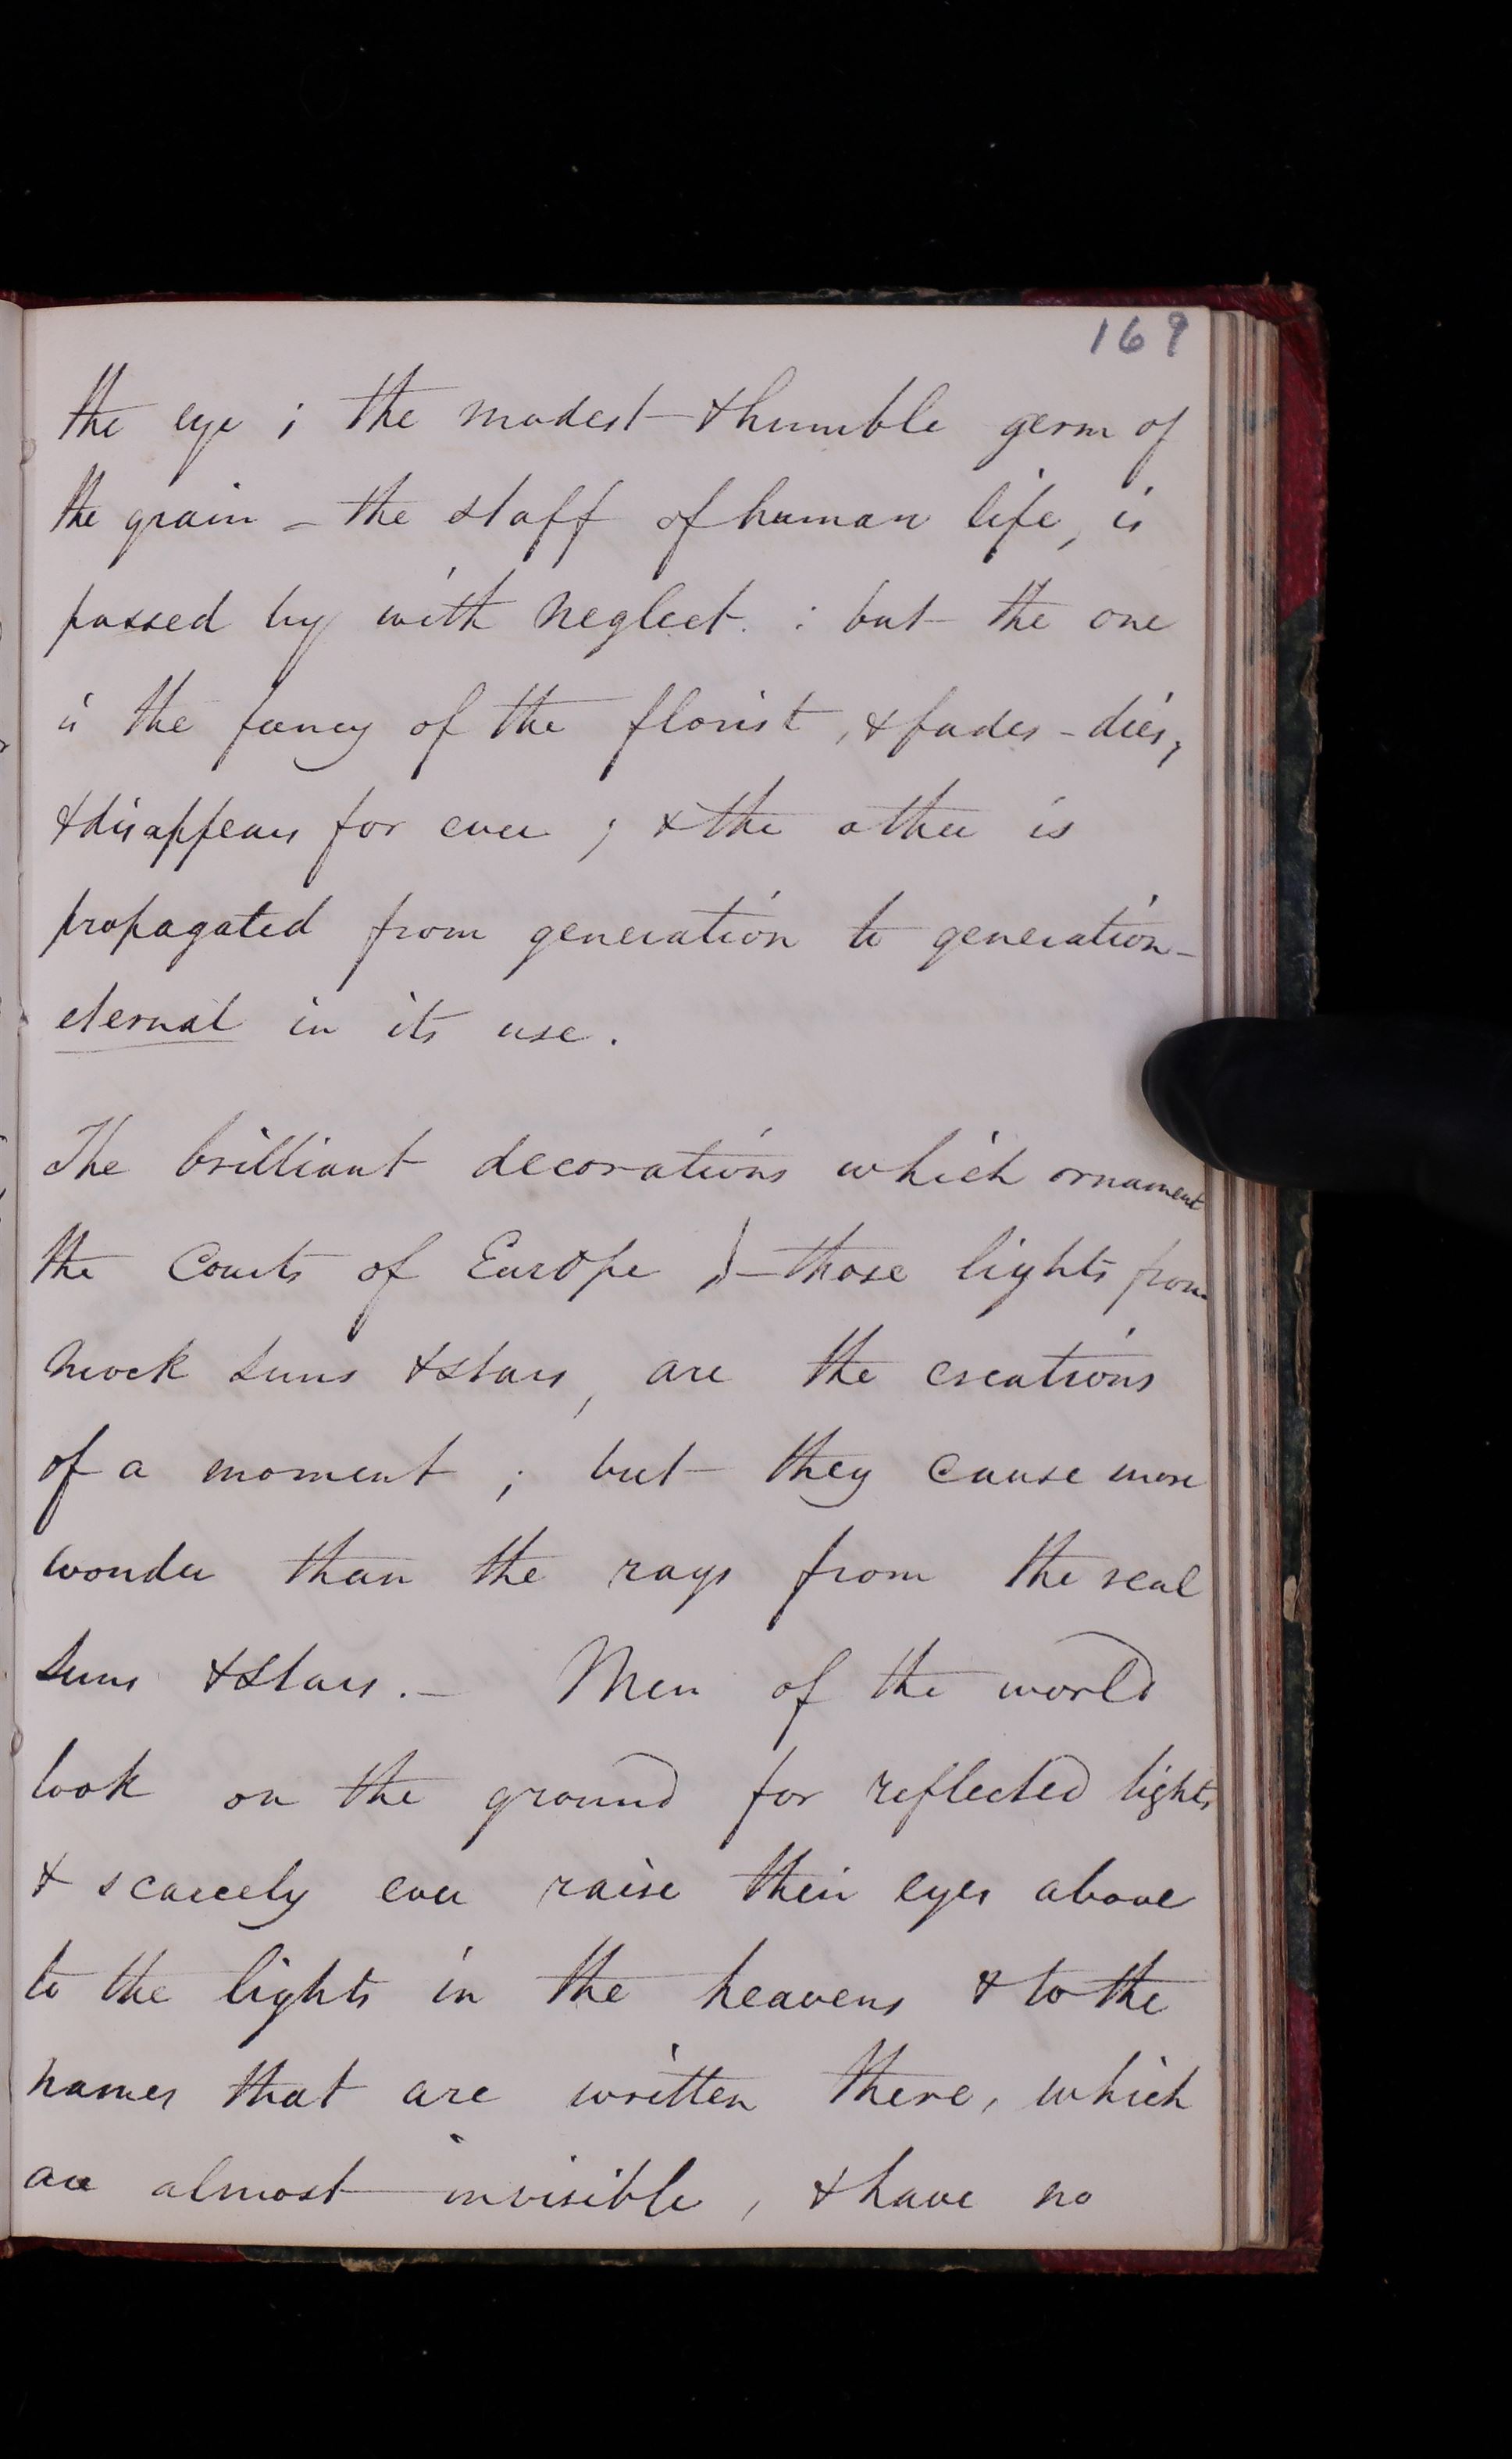 169
the eye ; the modest & humble germ of
the grain - the staff of human life, is
passed by with neglect. : but the one
is the fancy of the florist, & fades - dies,
& disappears for ever ; & the other is
propagated from generation to generation -
eternal in its use.
The brilliant decorations which ornament
the Courts of Europe, - those lights from
mock suns & stars, are the creations
of a moment ; but they cause more
wonder than the rays from the real
suns & stars. - Men of the world
look on the ground for reflected lights,
& scarcely ever raise their eyes above
to the lights in the heavens & to the
names that are written there, which
are almost invisible, & have no